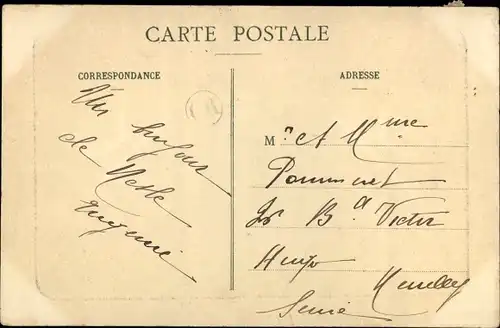 CARTE POSTALE
CORRESPONDANCE
Un bonjour
de Nesle
Eugenie
ADRESSE
M^r et M^me
Pommeret
B^d Victor
Hugo Neuilly
Seine